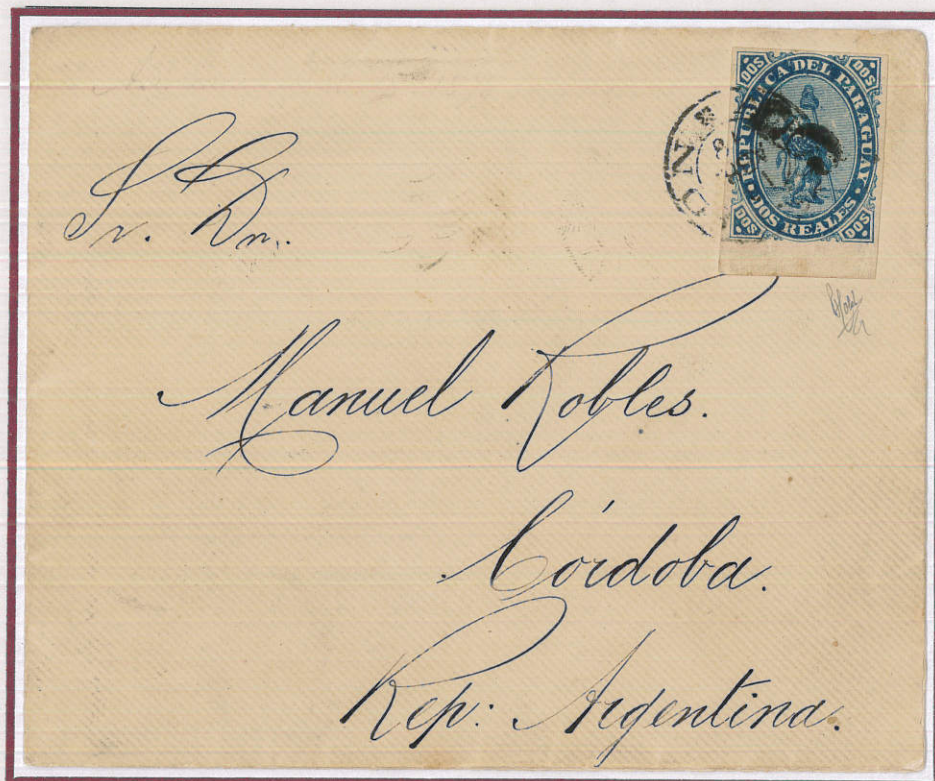 DOS DOS
REPUBLICA DEL PARAGUAY
DOS REALES
DOS DOS
Sr. Dn.
Manuel Robles.
Córdoba.
Rep: Argentina.